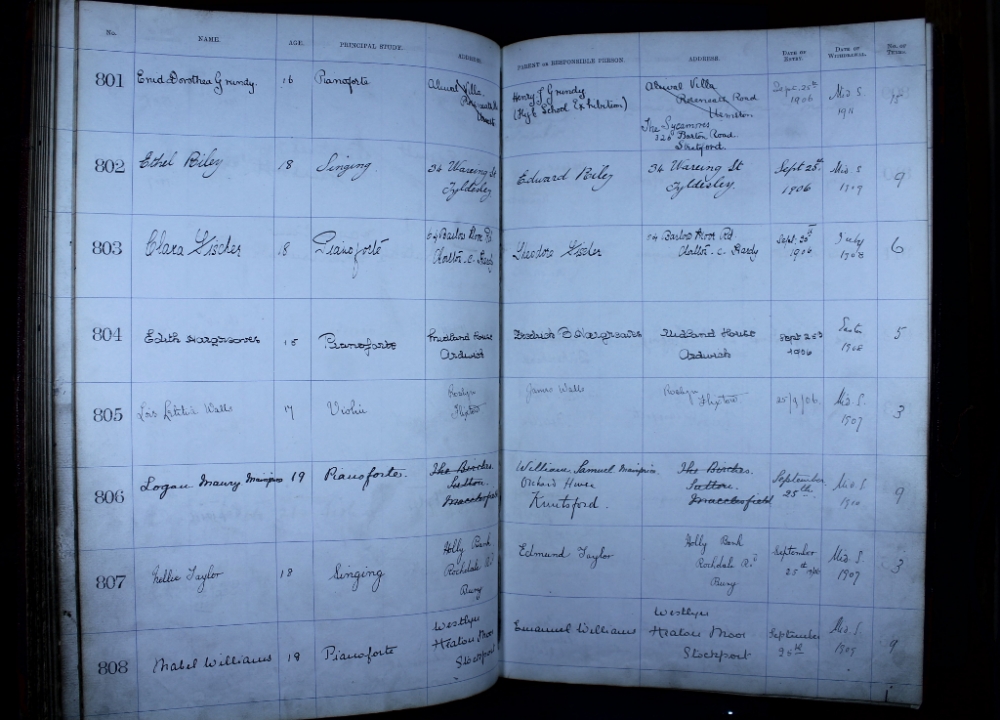 No. NAME. AGE. PRINCIPAL STUDY. ADDRESS. PARENT OR RESPONSIBLE PERSON. ADDRESS. DATE OF ENTRY. DATE OF WITHDRAWAL. NO. OF TERMS.
801 Enid Dorothea Grundy. 16 Pianoforte Villa Henry J Grundy Villa Sept. 25th 1906 Mid S. 1911 15
(High School Exhibition) Road
The Sycamores
326 Barton Road
Stretford.
802 Ethel Biley 18 Singing 34 Wareing St Edward Biley 34 Wareing St Sept 25th Mid S 9
Tyldesley Tyldesley. 1906 1909
803 Clara Fischer 18 Pianoforte 54 Barlow Moor Rd Theodore Fischer 54 Barlow Moor Rd Sept. July 6
Chorlton. c. Hardy Chorlton. c. Hardy 1906 1908
804 Edith Hargreaves 15 Pianoforte Midland House Frederick B Hargreaves Midland House Sept 25th 5
Ardwick Ardwick 1906 1908
805 Letitia Walls 17 Violin Roslyn James Walls Roslyn 25/9/06 Mid. S. 3
Flixton Flixton 1907
806 Logan Maury 19 Pianoforte. The Birches William Samuel The Birches. September Mid S. 9
Sutton. Orchard House Sutton. 25th
Macclesfield Knutsford. Macclesfield
807 Nellie Taylor 18 Singing Holly Bank Edmund Taylor Holly Bank September Mid S. 3
Rochdale Rd Rochdale Rd 25th 1907
Bury Bury
808 Mabel Williams 18 Pianoforte Westlyn Emanuel Williams Westlyn September Mid. S. 9
Heaton Moor Heaton Moor
Stockport Stockport